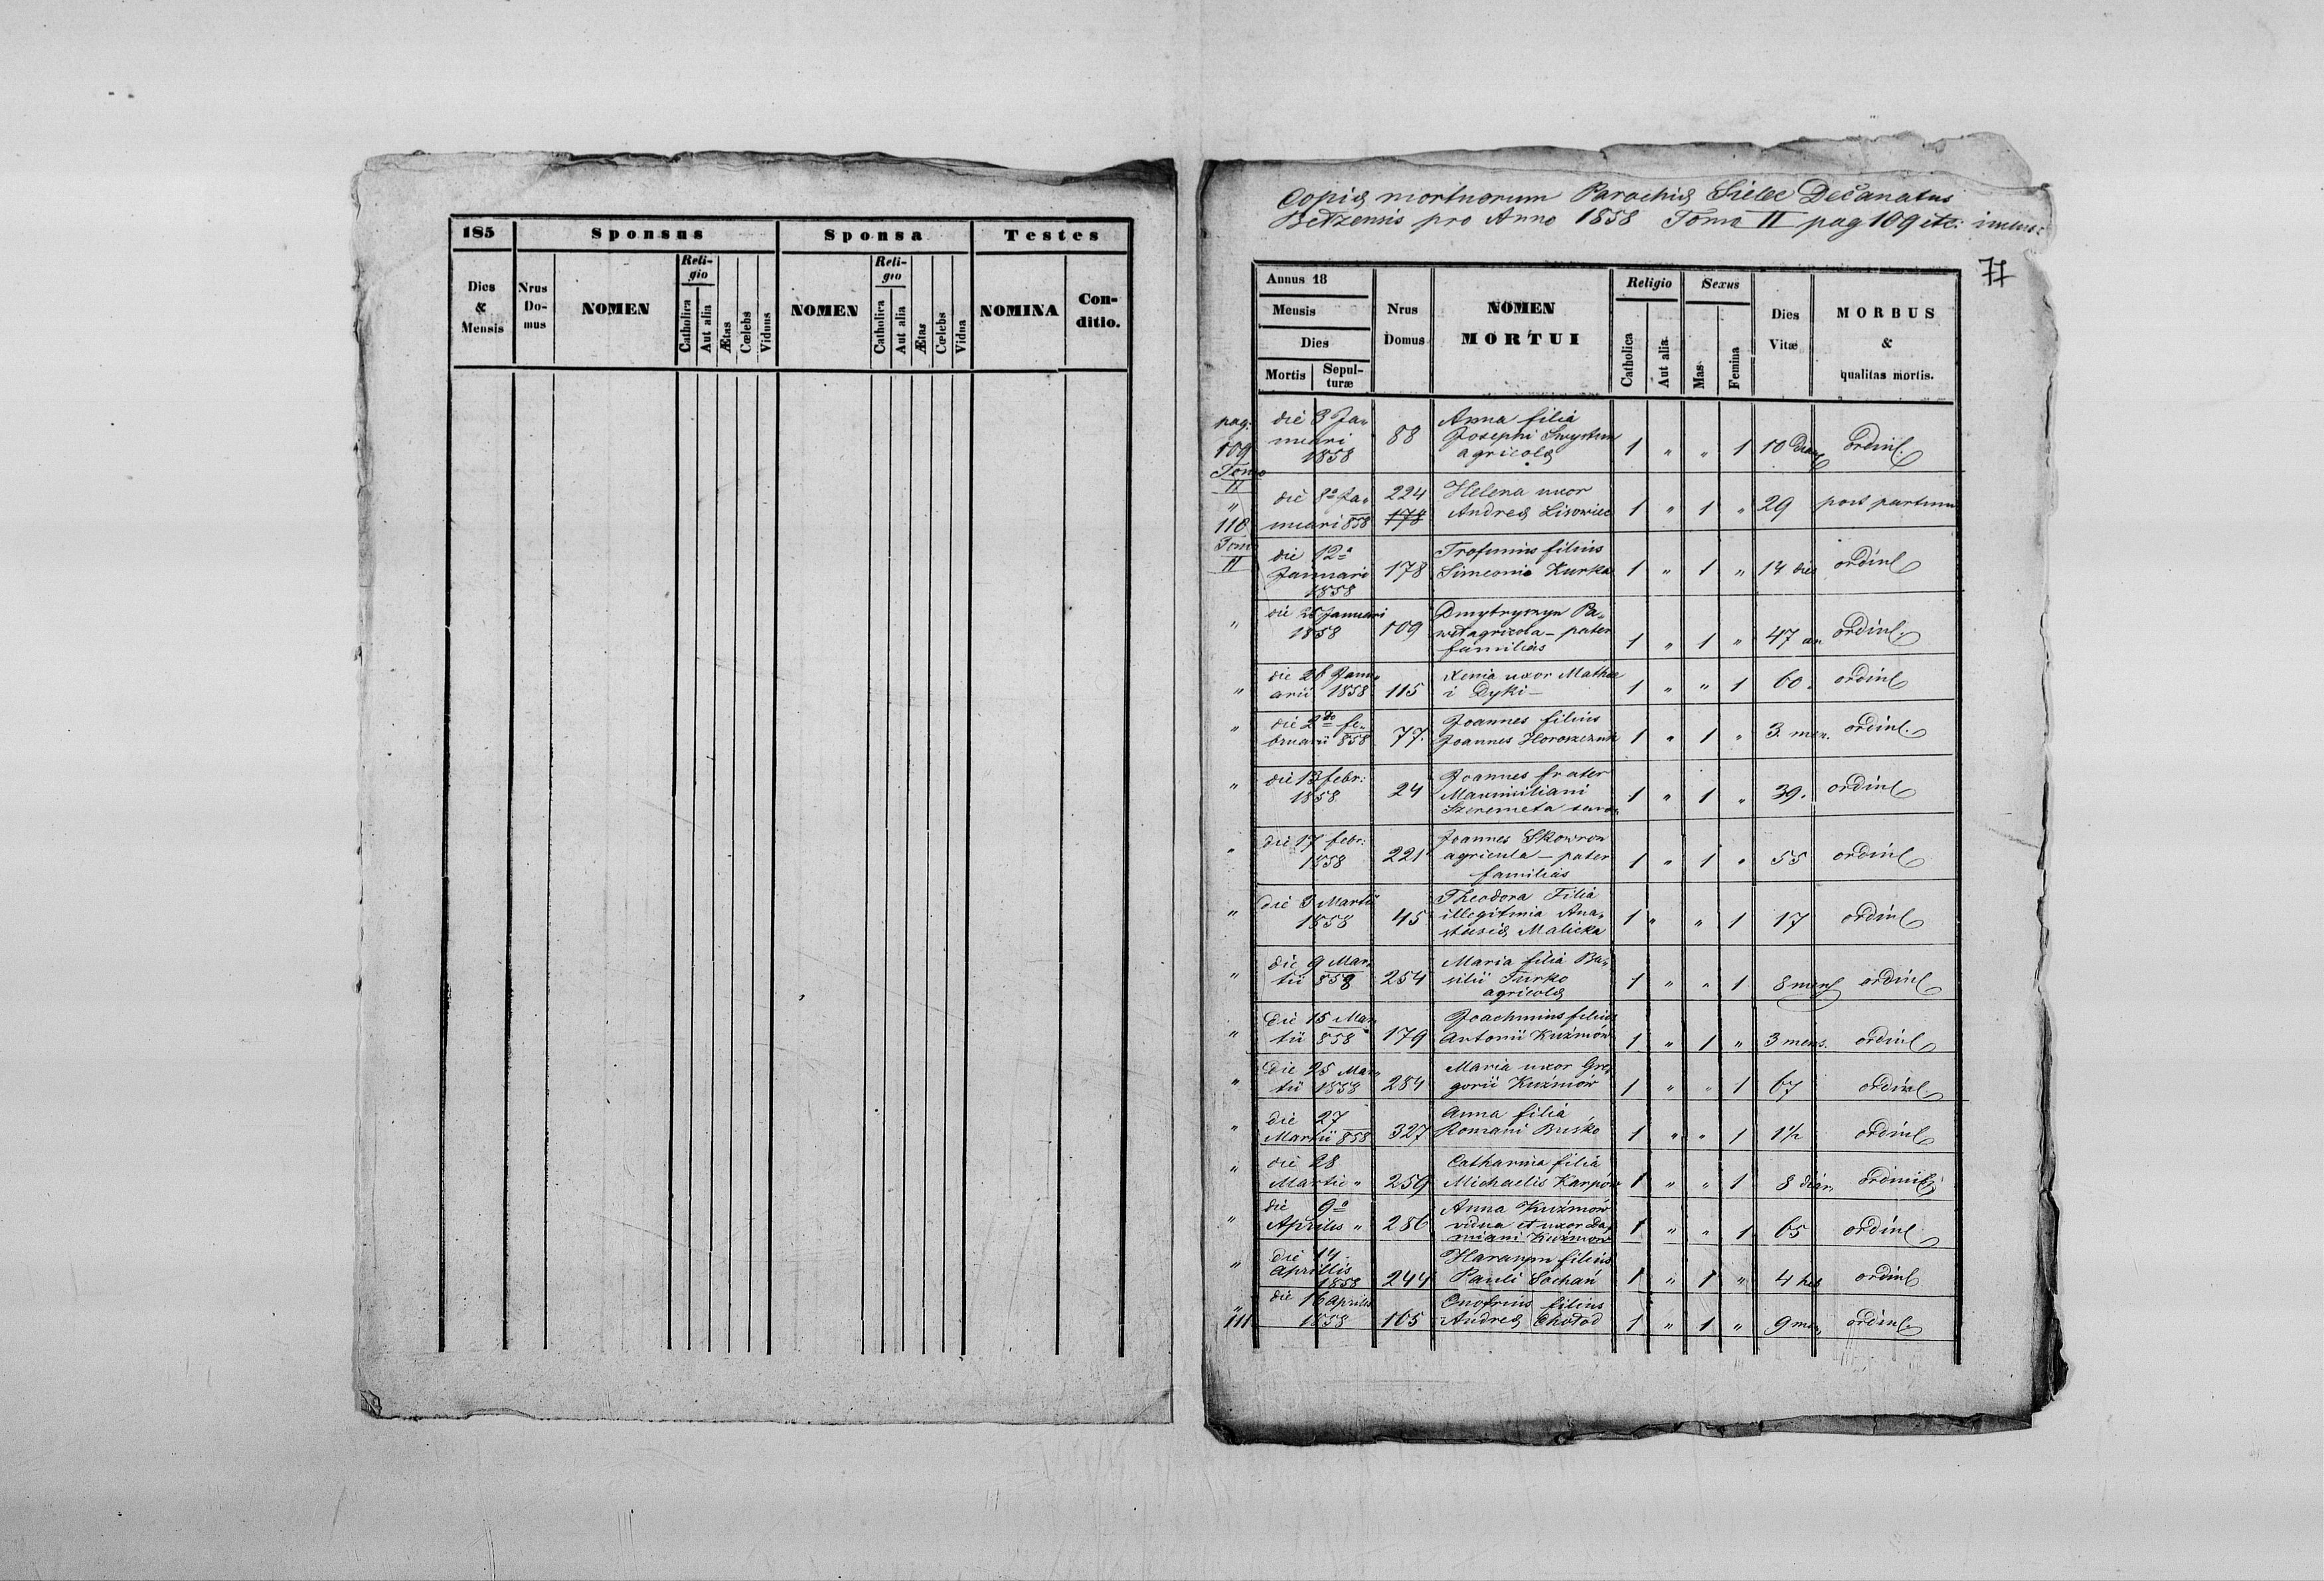 185 Sponsus Sponsa Testes
Dies & Mensis Nrus Do- mus NOMEN Reli- gio Catholica Aut alia Ætas Cœlebs Viduus NOMEN Reli- gio Catholica Aut alia Ætas Cœlebs Vidua NOMINA Con- ditio.
Copia mortuorum Parochiæ Sielec Decanatus
Bełzensis pro Anno 1858 Tomo II pag 109 etc:
71
Annus 18
Mensis
Dies
Mortis Sepul- turæ
Nrus Domus
NOMEN MORTUI
Religio
Catholica Aut alia
Sexus
Mas. Femina
Dies Vitæ
MORBUS & qualitas mortis.
pag. 109 Tomo II
die 3 Ja-
nuari
1858
88
Anna filia
Josephi
agricolæ
1 " " 1 10 ordinl.
" 110 Tomo II
die 8a Ja-
nuari 858
224
178
Helena uxor
Andreæ Lisowiec
1 " 1 " 29 post partum
die 12a
Januari
1858
178
Trofimus filius
Simeonis Kurka
1 " 1 " 14 dies ordinl
"
die 25 Januari
1858
109
Dmytryszyn Pa-
weł agricola - pater
familias
1 " 1 " 47 an ordinl.
"
die 26 Janu-
arii 1858
115
Xenia uxor Mathæ
i Dyki -
1 " " 1 60. ordinl
"
die 2do fe-
bruarii 858
77.
Joannes filius
Joannes Horoszczuk
1 " 1 " 3 men. ordinl.
"
die 13 febr:
1858
24
Joannes frater
Maximiliani
Szeremeta
1 " 1 " 39. ordinl
"
die 17 febr:
1858
221
Joannes Skowron
agricula - pater
familias
1 " 1 " 55 ordinl
"
die Martii
1858
45
Theodora Filia
illegitmia Ana-
stasiæ Malicka
1 " " 1 17 ordinl
"
die 9 Mar-
tii 858
254
Maria filia Ba-
silii Turko
agricolæ
1 " " 1 8 mens ordinl
"
Die 15 Mar-
tii 858
179
Joachmius filius
Antonii Kuźmów
1 " 1 " 3 mens. ordinl
"
Die 25 Mar-
tii 1858
284
Maria uxor Gre-
gorii Kuźmów
1 " " 1 67 ordinl
"
die 27
Martii 858
327
Anna filia
Romani Buśko
1 " " 1 1½ ordinl
"
die 28
Martii "
259
Catharina filia
Michaelis Karpów
1 " " 1 8 dier. ordinl
"
die 9a
Aprilis "
286
Anna Kuźmów
vidua et uxor Da-
miani Kuźmów
1 " " 1 65 ordinl
"
Die 14
Aprillis
1858
244
Harasym filius
Pauli Sachań
1 " 1 " 4 ordinl
" 111
die 16 Aprilis
1858
165
Onofrius filius
Andreæ Chołod
1 " 1 " 9 men. ordinl.